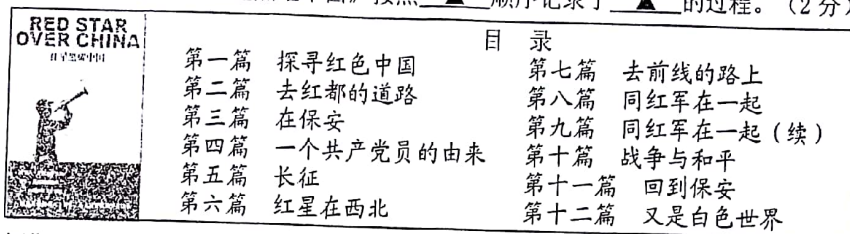 按照 ▲ 顺序记录了 ▲ 的过程。(2分)
RED STAR
OVER CHINA
红星照耀中国
目 录
第一篇 探寻红色中国
第二篇 去红都的道路
第三篇 在保安
第四篇 一个共产党员的由来
第五篇 长征
第六篇 红星在西北
第七篇 去前线的路上
第八篇 同红军在一起
第九篇 同红军在一起(续)
第十篇 战争与和平
第十一篇 回到保安
第十二篇 又是白色世界